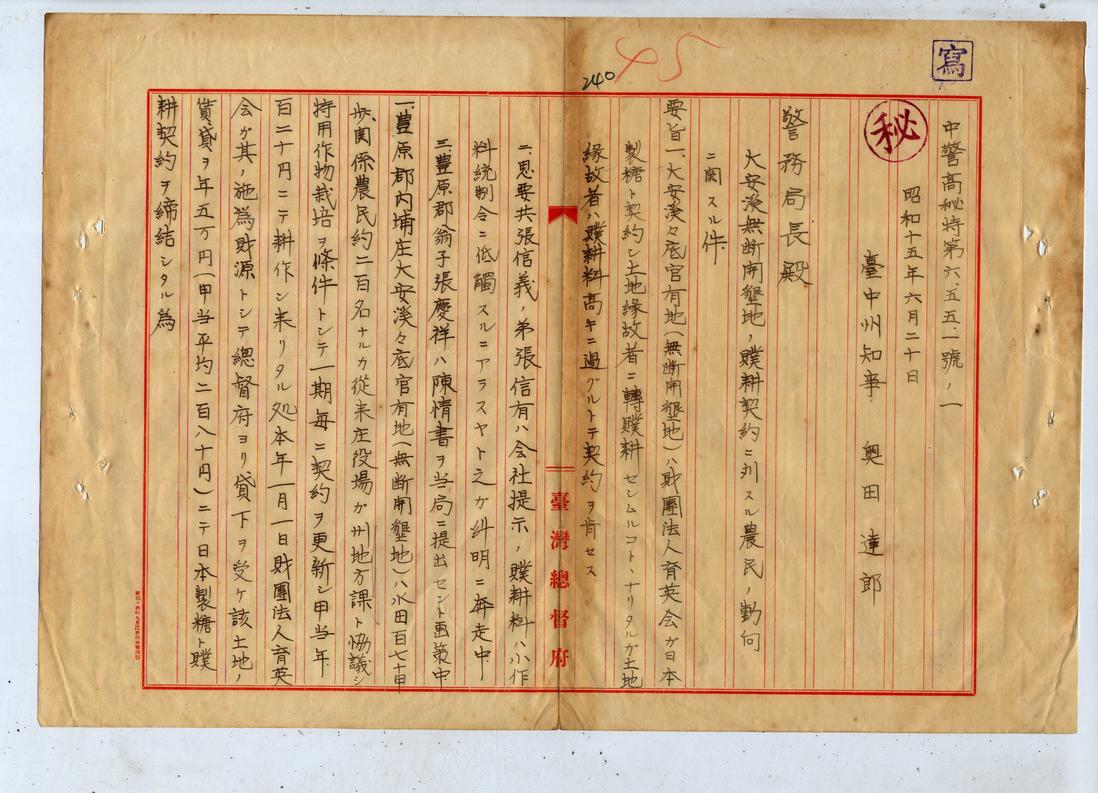 寫
秘
45
240
中警高秘特第六、五五、二號ノ一
昭和十五年六月二十日
臺中州知事 奥田達郎
警務局長殿
大安溪無断開墾地ノ贌耕契約ニ対スル農民ノ動向
ニ関スル件
要旨一、大安溪々底官有地(無断開墾地)ハ財團法人育英会ガ日本
製糖ト契約シ土地緣故者ニ轉贌耕セシムルコトヽナリタルガ土地
緣故者ハ贌耕料高キニ過グルトテ契約ヲ肯セス
二、思要共張信義ノ弟張信有ハ会社提示ノ贌耕料ハ小作
料統制令ニ低觸スルニアラスヤト之カ糾明ニ奔走中
三、豊原郡翁子張慶祥ハ陳情書ヲ当局ニ提出セント画策中
一、豊原郡内埔庄大安溪々底官有地(無断開墾地)ハ水田百七十甲
歩、関係農民約二百名ナルカ從来庄役場ガ州地方課ト協議シ
特用作物栽培ヲ條件トシテ一期毎ニ契約ヲ更新シ甲当年
百二十円ニテ耕作シ来リタル処本年一月一日財團法人育英
会ガ其ノ施為財源トシテ總督府ヨリ貸下ヲ受ケ該土地ノ
賃貸ヲ年五万円(甲当平均二百八十円)ニテ日本製糖ト贌
耕契約ヲ締結シタル為
臺灣總督府